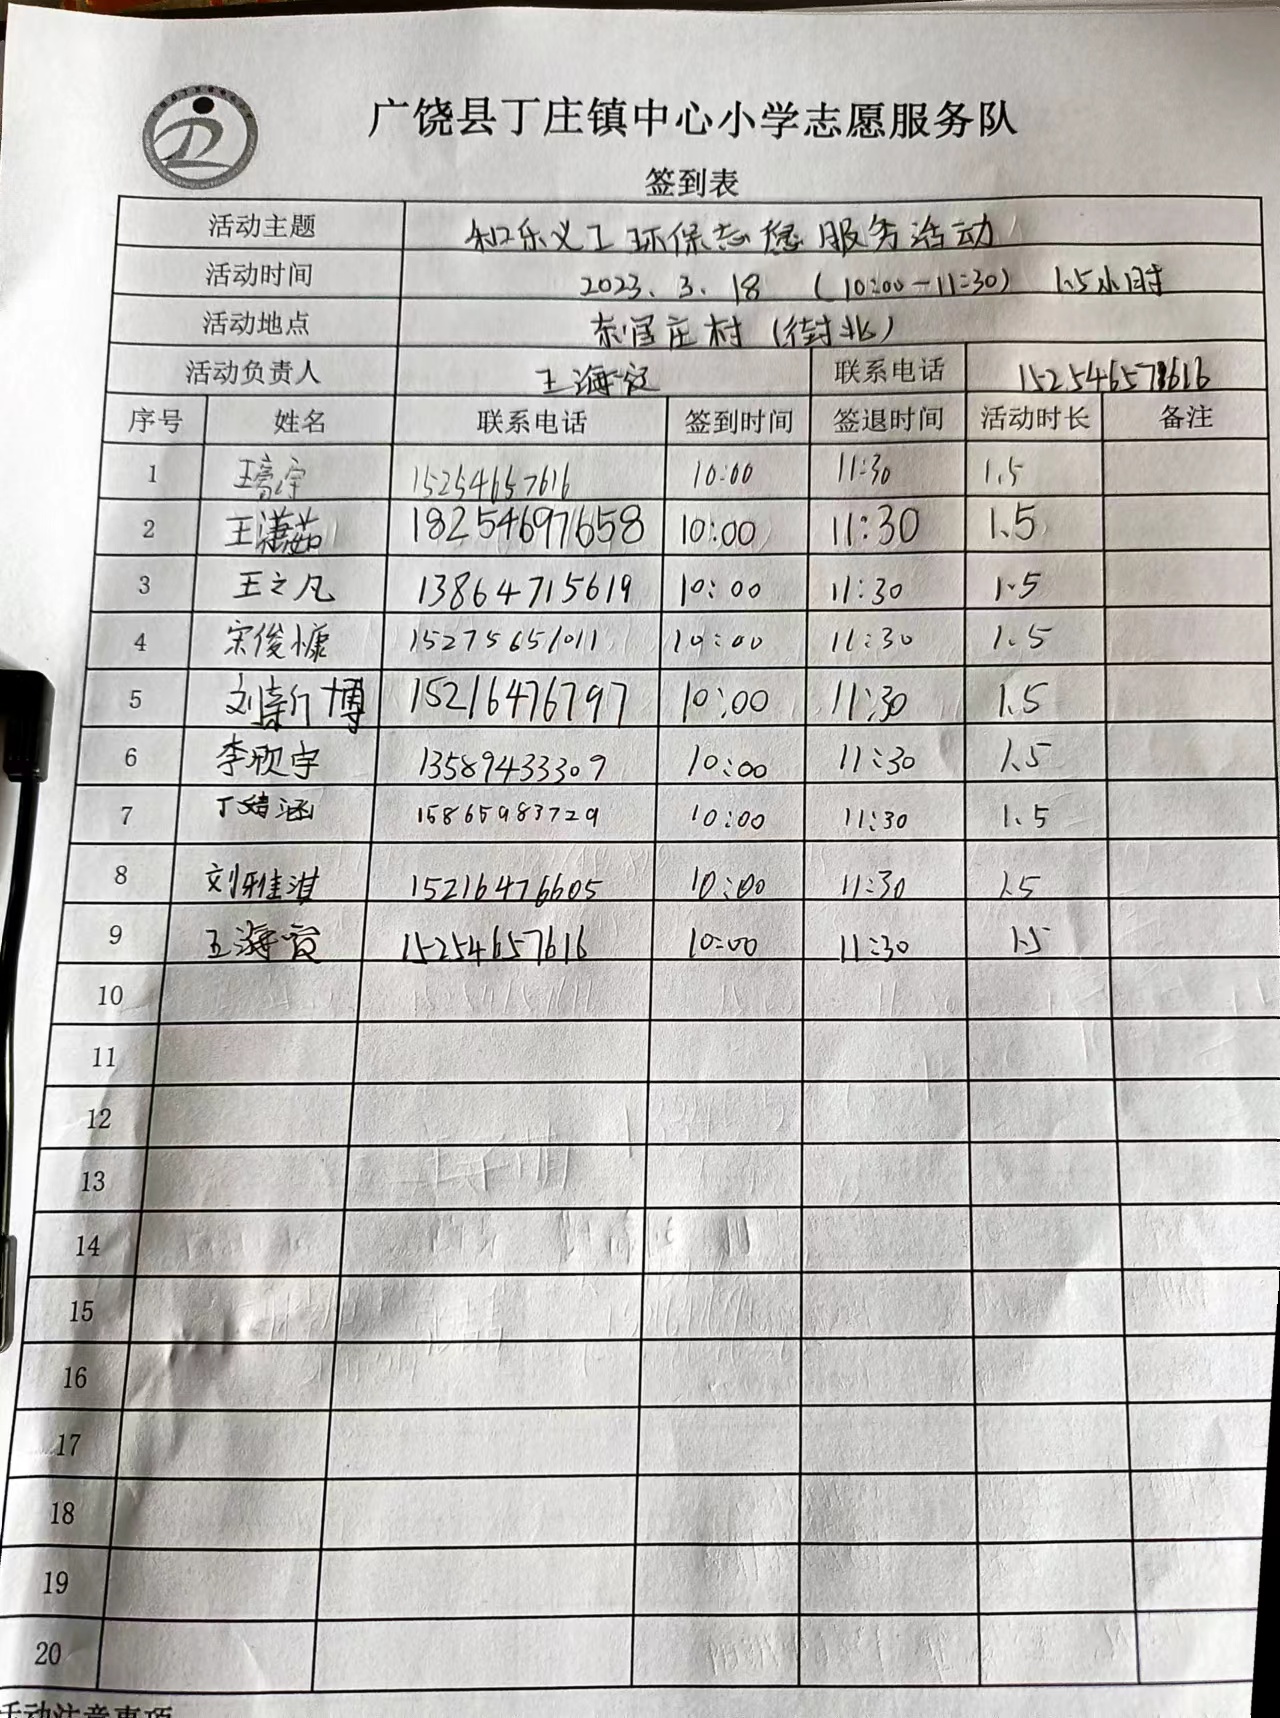 广饶县丁庄镇中心小学志愿服务队
签到表
活动主题 和乐义工环保志愿服务活动
活动时间 2023.3.18 (10:00-11:30) 1.5小时
活动地点 庄村(街北)
活动负责人 王海 联系电话
序号 姓名 联系电话 签到时间 签退时间 活动时长 备注
1 15254657616 10:00 11:30 1.5
2 王潇茹 18254697658 10:00 11:30 1.5
3 王之凡 13864715619 10:00 11:30 1.5
4 宋俊慷 15275651011 10:00 11:30 1.5
5 刘新博 15216476797 10:00 11:30 1.5
6 李欣宇 13589433309 10:00 11:30 1.5
7 丁婧涵 15865983729 10:00 11:30 1.5
8 刘雅淇 15216476605 10:00 11:30 1.5
9 王海 15254657616 10:00 11:30 1.5
10
11
12
13
14
15
16
17
18
19
20
活动注意事项